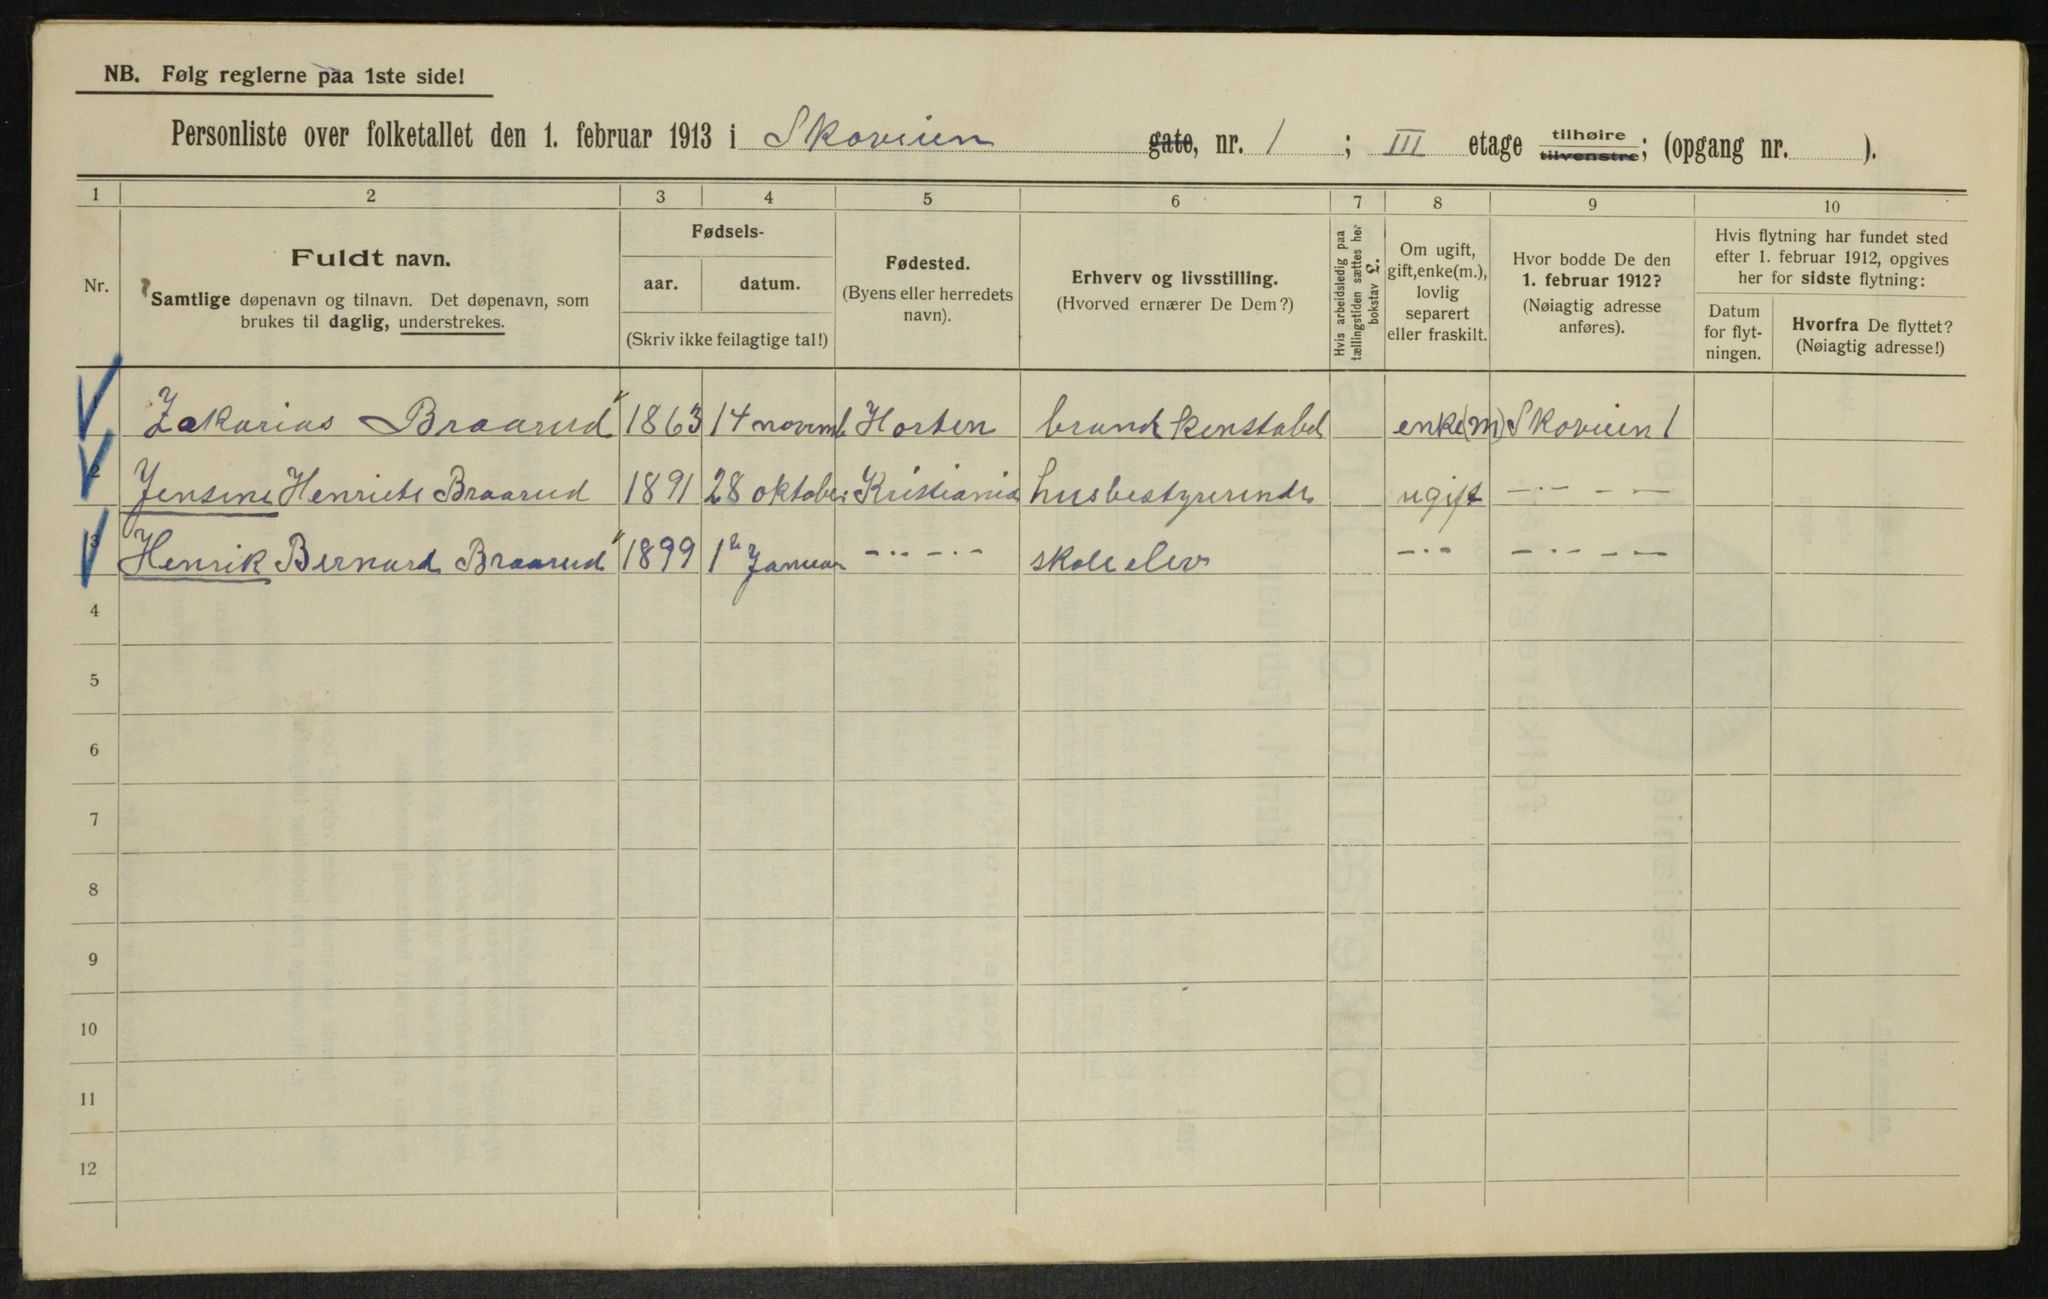 NB. Følg reglerne paa 1ste side!
Personliste over folketallet den 1. februar 1913 i Skoveien gate, nr. 1 ; III etage tilhøire tilvenstre; (opgang nr. ).
1 2 3 4 5 6 7 8 9 10
Nr.
Fuldt navn.
Samtlige døpenavn og tilnavn. Det døpenavn, som
brukes til daglig, understrekes.
Fødsels-
aar. datum.
(Skriv ikke feilagtige tal!)
Fødested.
(Byens eller herredets
navn).
Erhverv og livsstilling.
(Hvorved ernærer De Dem?)
Hvis arbeidsledig paa
tællingstiden sættes her
bokstav L.
Om ugift,
gift, enke(m.),
lovlig
separert
eller fraskilt.
Hvor bodde De den
1. februar 1912?
(Nøiagtig adresse
anføres).
Hvis flytning har fundet sted
efter 1. februar 1912, opgives
her for sidste flytning:
Datum
for flyt-
ningen.
Hvorfra De flyttet?
(Nøiagtig adresse!)
Zakarias Braarud 1863 14 novemb Horten brandkonstabel enke(m) Skoveien 1
2 Jensine Henriete Braarud 1891 28 oktober Kristiania husbestyrerinde ugift —·— — —
3 Henrik Bernard Braarud 1899 1 Januar —··—·— skoleelev —·— —·— — —
4
5
6
7
8
9
10
11
12